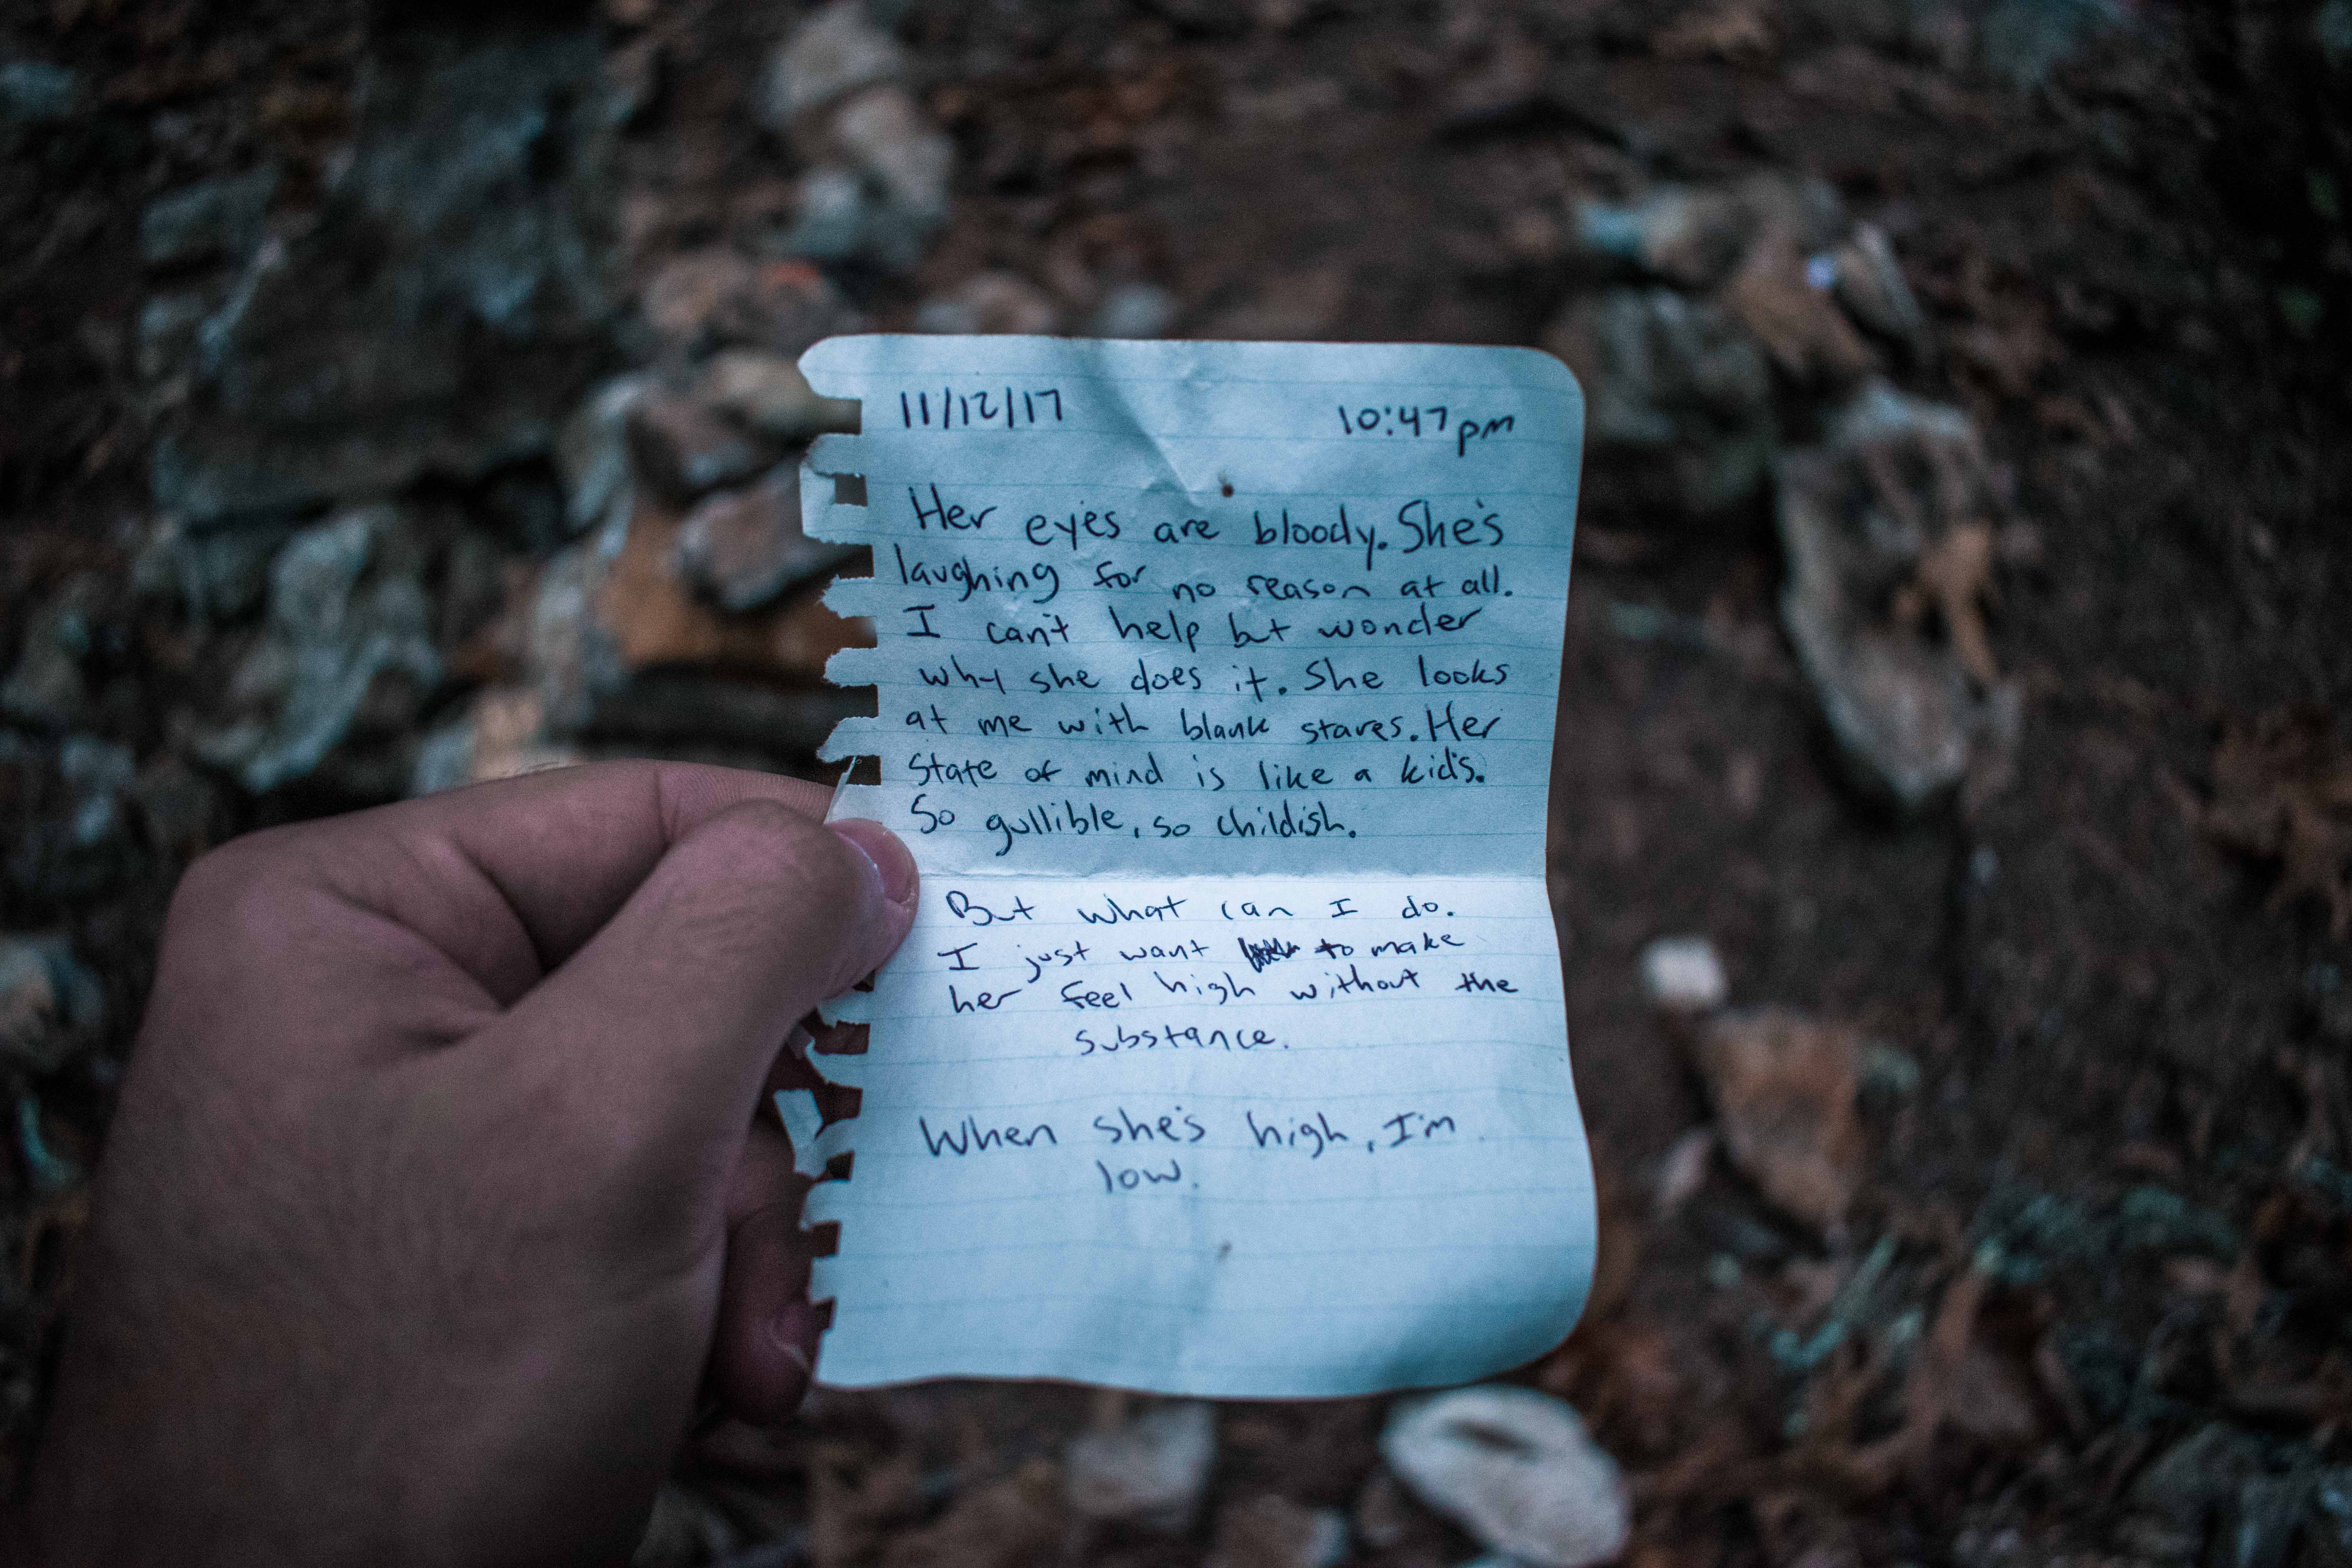 11/12/17 10:47pm
Her eyes are bloody. She's
laughing for no reason at all.
I can't help but wonder
why she does it. She looks
at me with blank stares. Her
state of mind is like a kid's.
So gullible, so childish.
But what can I do.
I just want to make
her feel high without the
substance.
When she's high, I'm
low.